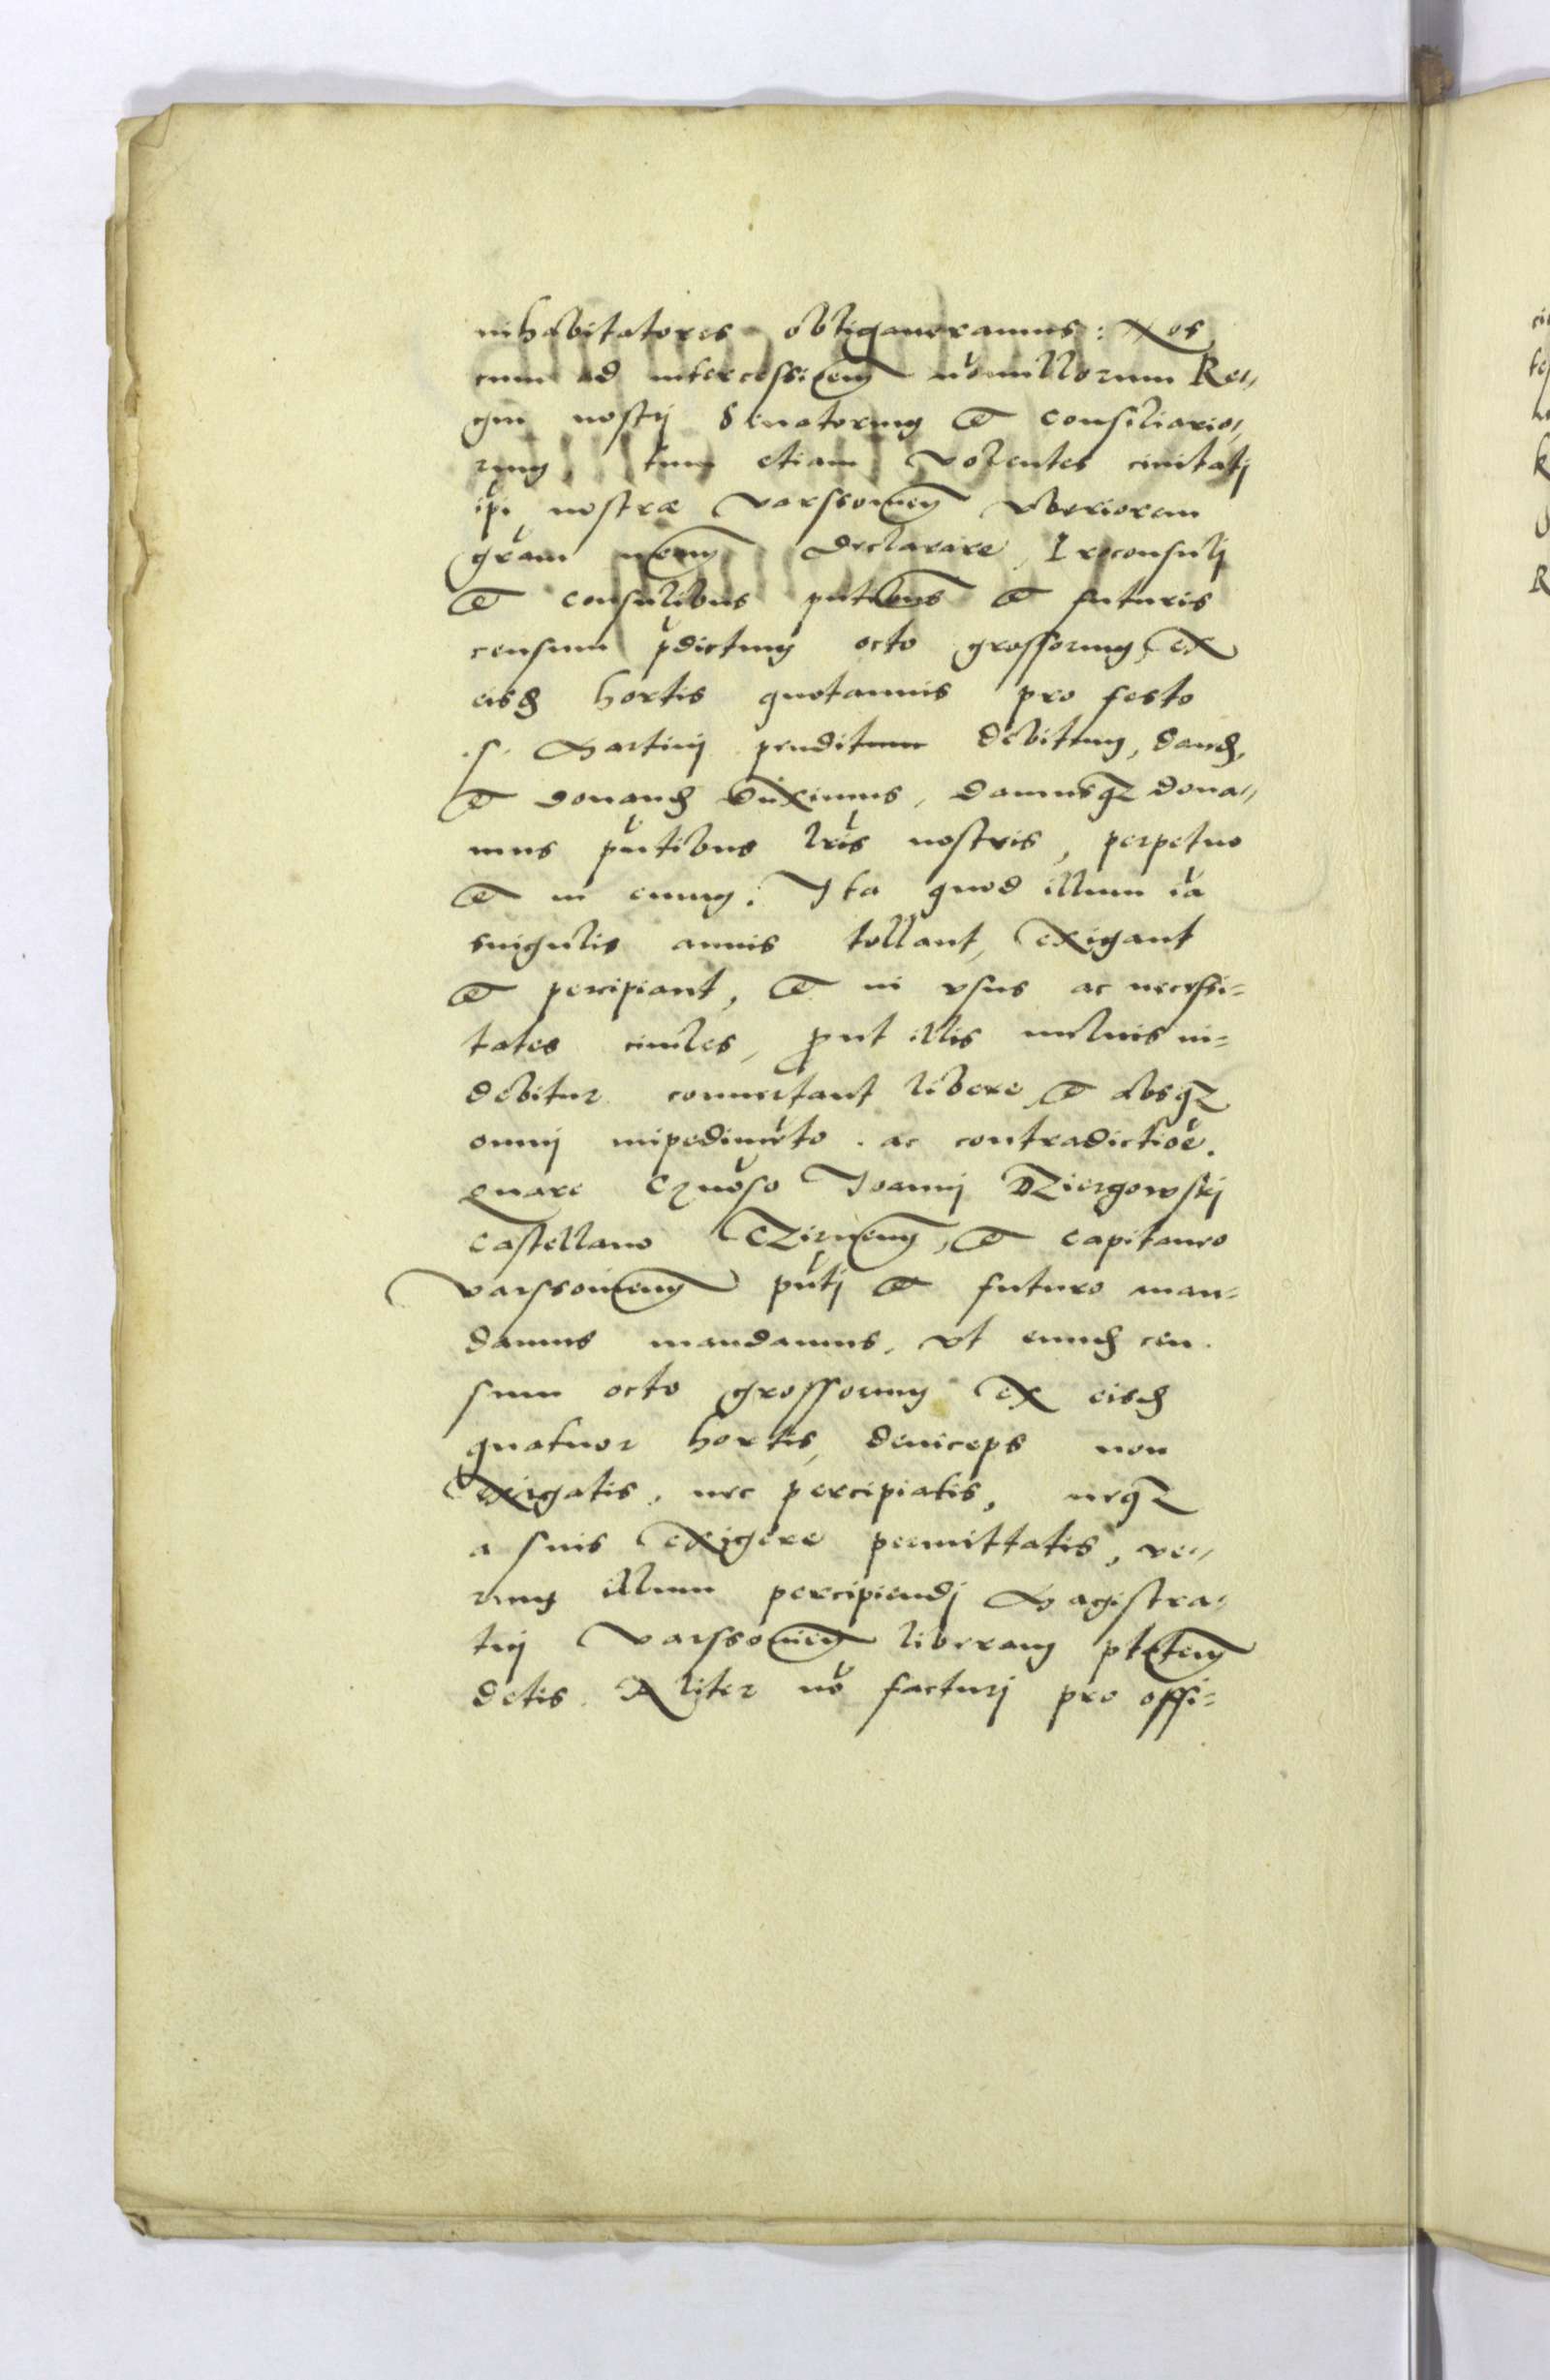 inhabitatores obligaueramus: Nos
cum ad intercessionem nonnullorum Re„
gni nostrj Senatorum et consiliario„
rum, tum etiam volentes ciuitatj
ipi nostræ Varssouien vberiorem
gram nram declarare, Proconsulj
et consulibus pntibus et futuris
censum pdictum octo grossorum, ex
eisd hortis quotannis pro festo
.S. Martinj pendi debitum, dand,
et donand duximus, damusq dona„
mus pntibus lris nostris, perpetuo
et in euum. Ita quod illum ia
singulis annis tollant, exigant
et percipiant, et in vsus ac necessi=
tates ciuiles, prout illis melius ui=
debitur conuertant libere et absq
omnj impedimeto. ac contradictioe.
Quare Gnoso Joannj Dziergowskj
Castellano Czirnen, et Capitaneo
Varssouien pntj et futuro man=
damus mandamus, vt eumd cen
sum octo grossorum ex eisd
quatuor hortis, deinceps non
exigatis, nec percipiatis, neq
a suis exigere permittatis, ve„
rum illum percipiendj Magistra„
tuj Varssouien liberam ptatem
detis. Aliter no facturj pro offi=